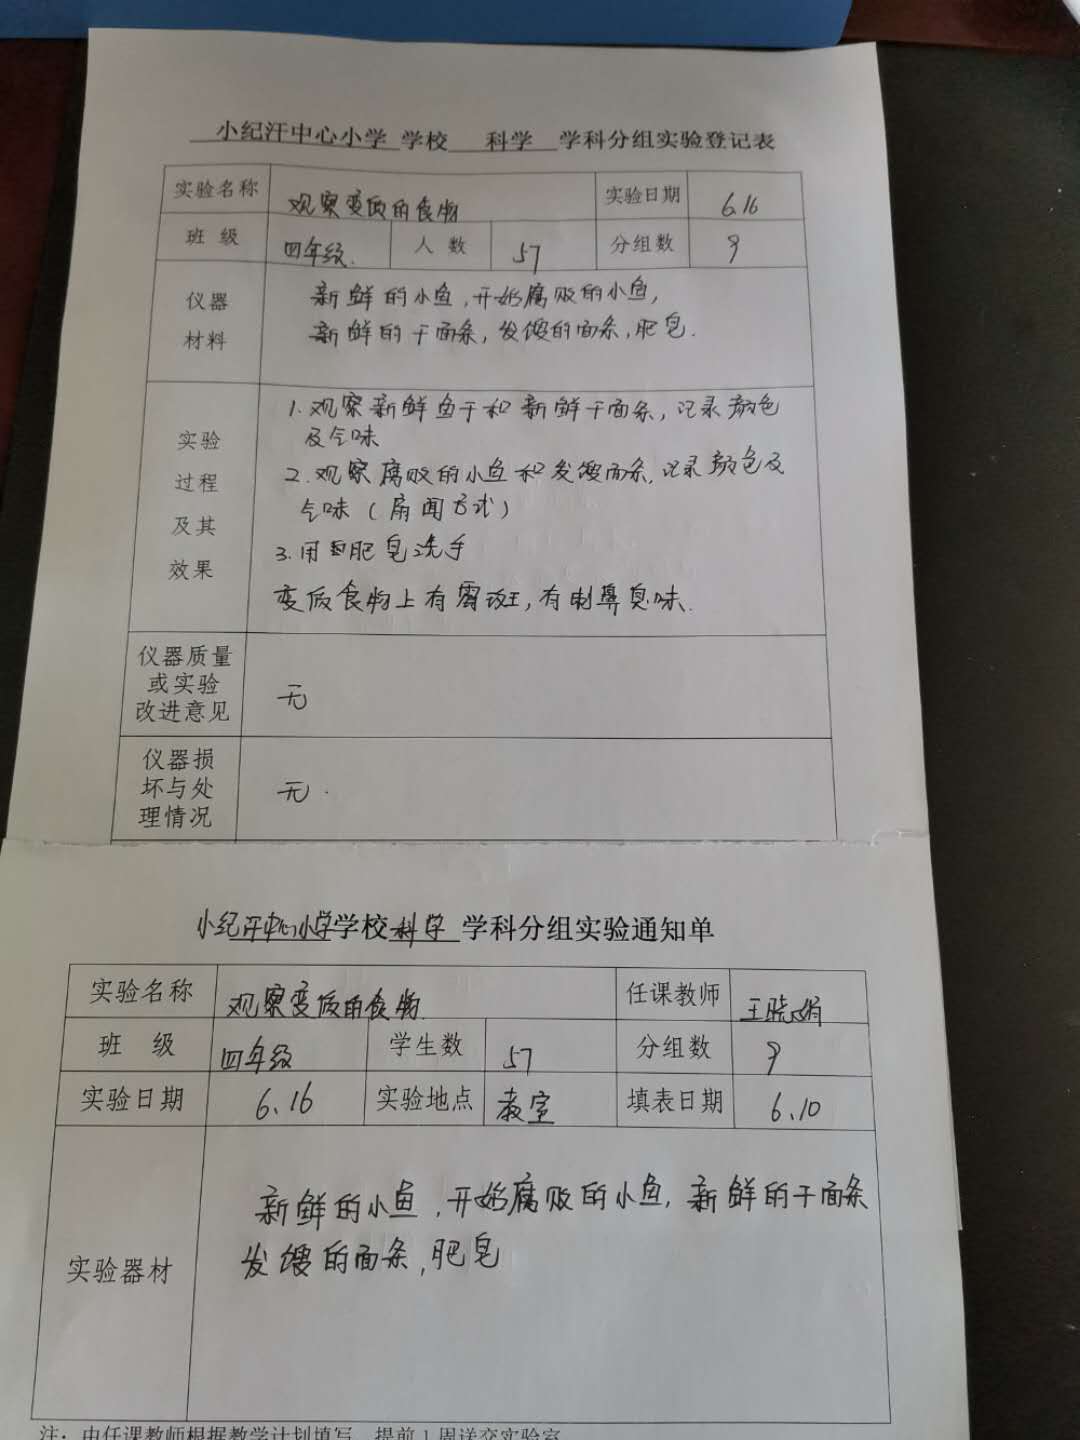 小纪汗中心小学 学校 科学 学科分组实验登记表
实验名称 观察变质的食物 实验日期 6.16
班 级 四年级. 人 数 57 分组数 9
仪器 新鲜的小鱼,开始腐败的小鱼,
材料 新鲜的干面条,发馊的面条,肥皂.
1.观察新鲜鱼干和新鲜干面条,记录颜色
及气味
实验
2.观察腐败的小鱼和发馊面条,记录颜色及
过程
气味(扇闻方式)
及其
3.用肥皂洗手
效果
变质食物上有霉斑,有刺鼻臭味.
仪器质量
或实验 无
改进意见
仪器损
坏与处 无.
理情况
小纪汗中心小学学校科学 学科分组实验通知单
实验名称 观察变质的食物. 任课教师 王晓娟
班 级 四年级 学生数 57 分组数 9
实验日期 6.16 实验地点 教室 填表日期 6.10
新鲜的小鱼,开始腐败的小鱼,新鲜的干面条
实验器材 发馊的面条,肥皂
注:由任课教师根据教学计划填写,提前1周送交实验室